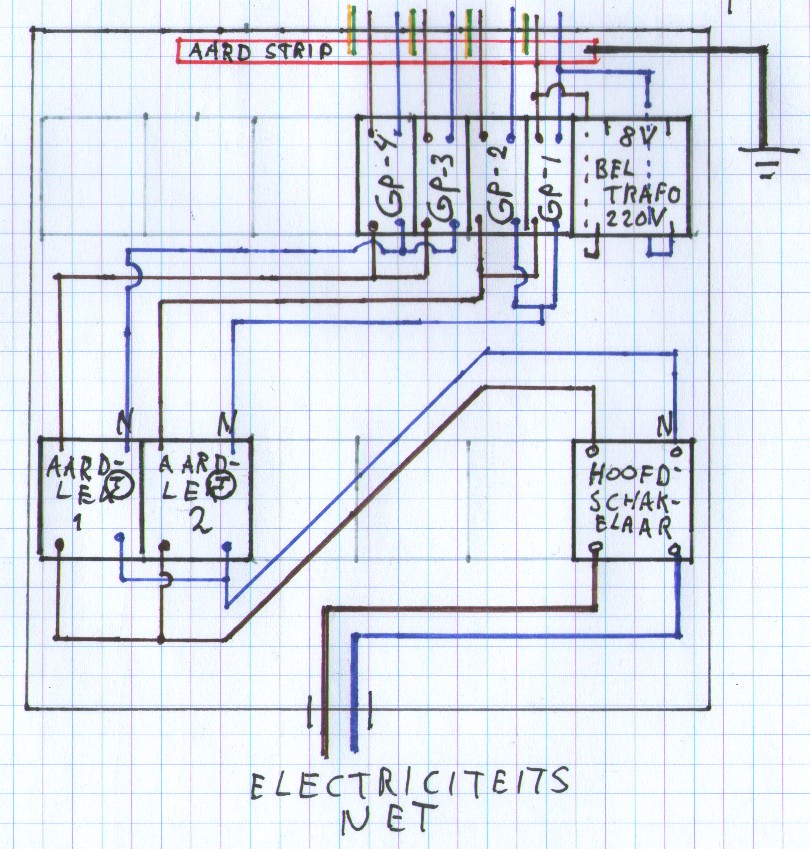 AARD STRIP
GP-4
GP-3
GP-2
GP-1
8V
BEL
TRAFO
220V
N
N
AARD-
LEK
T
1
AARD-
LEK
T
2
N
HOOFD-
SCHAK-
ELAAR
ELECTRICITEITS
NET